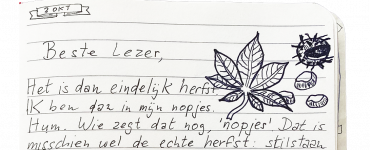 2 OKT
Beste Lezer,
Het is dan eindelijk herfst
IK ben dan in mijn nopjes.
Hum. Wie zegt dat nog, 'nopjes' Dat is
misschien wel de echte herfst: stilstaan